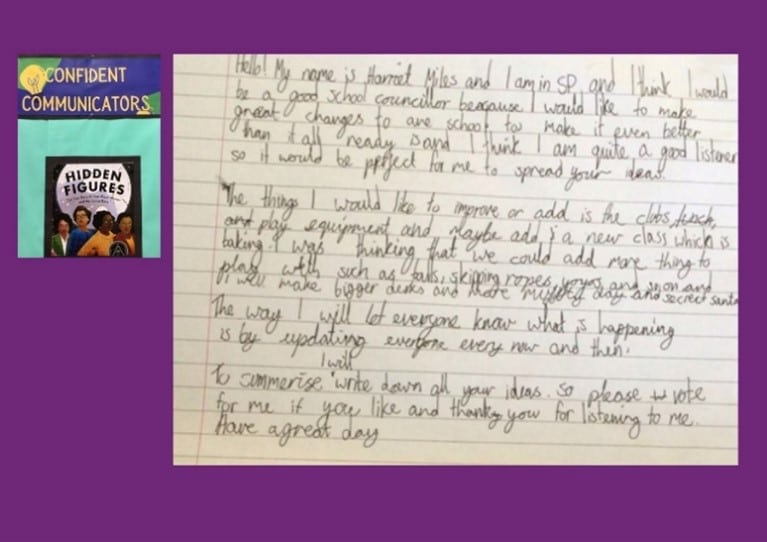 CONFIDENT
COMMUNICATORS
HIDDEN
FIGURES
Hello! My name is Harriet Miles and I am in SP and I think I would
be a good school councillor beacause I would like to make
great changes to are school to make it even better
than it all ready is and I think I am quite a good listener
so it would be perfect for me to spread your ideas.
The things I would like to improve or add is the clubs,
and play equipment and maybe add a new class which is
baking. I was thinking that we could add more thing to
play with such as balls, skipping ropes, yoyos and so on and
I will make bigger desks and more day and secret santa
The way I will let everyone know what is happening
is by updating everyone every now and then.
I will
To summerise write down all your ideas. So please vote
for me if you like and thank you for listening to me.
Have a great day